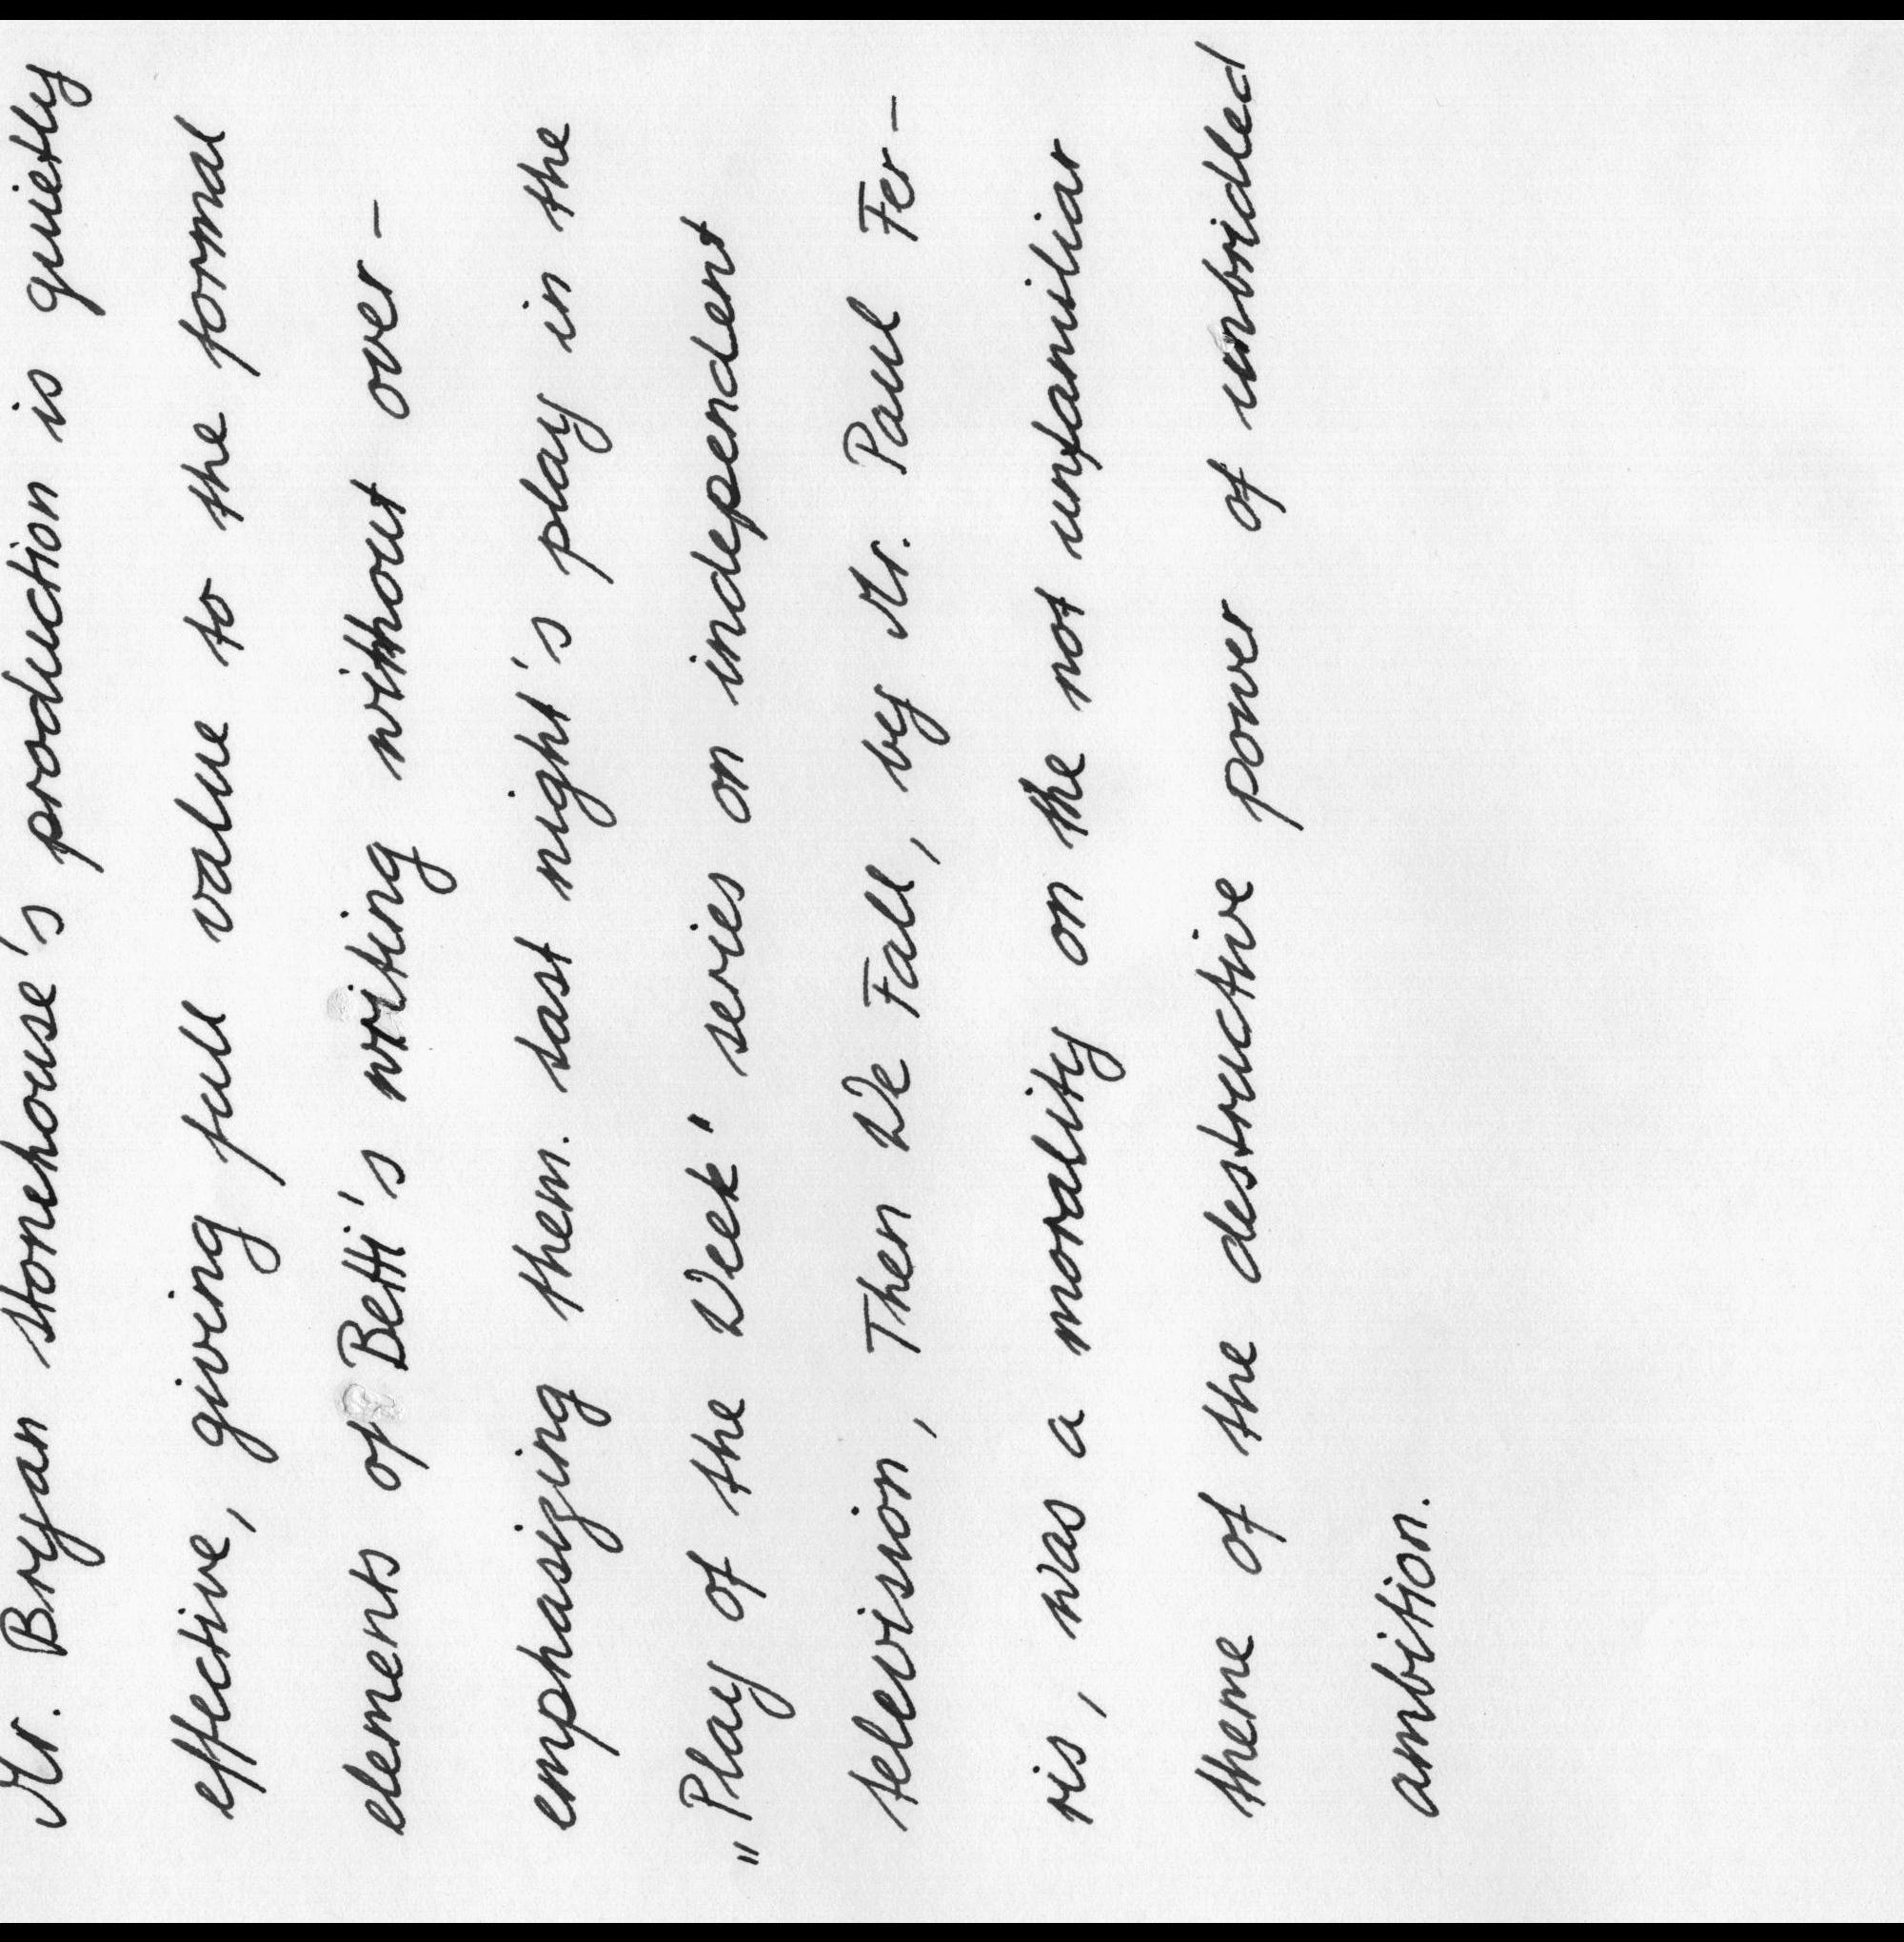 Mr. Bryan Stonehouse's production is quietly
effective, giving full value to the formal
elements of Betti's writing without over-
emphasizing them. Last night's play in the
"Play of the Week" series on independent
television, Then We Fall, by Mr. Paul Fer-
ris, was a morality on the not unfamiliar
theme of the destructive power of unbridled
ambition.